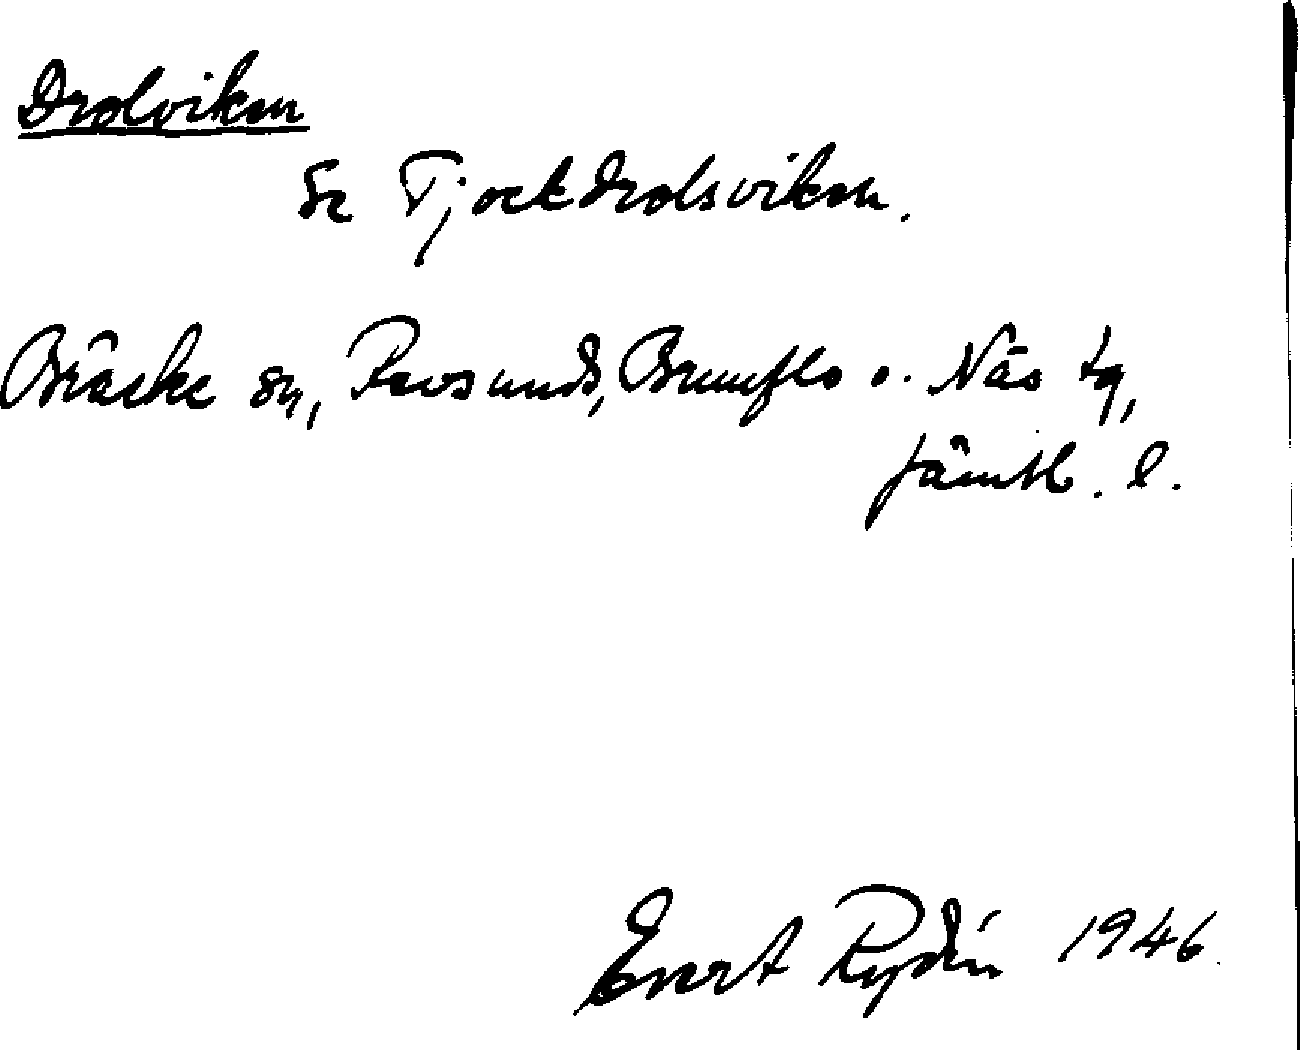 Drolviken
Se Tjockdrolsviken.
Bräcke sn, Revsunds, Brunflo o. Näs tg,
Jämtl. l.
Evert Rydin 1946